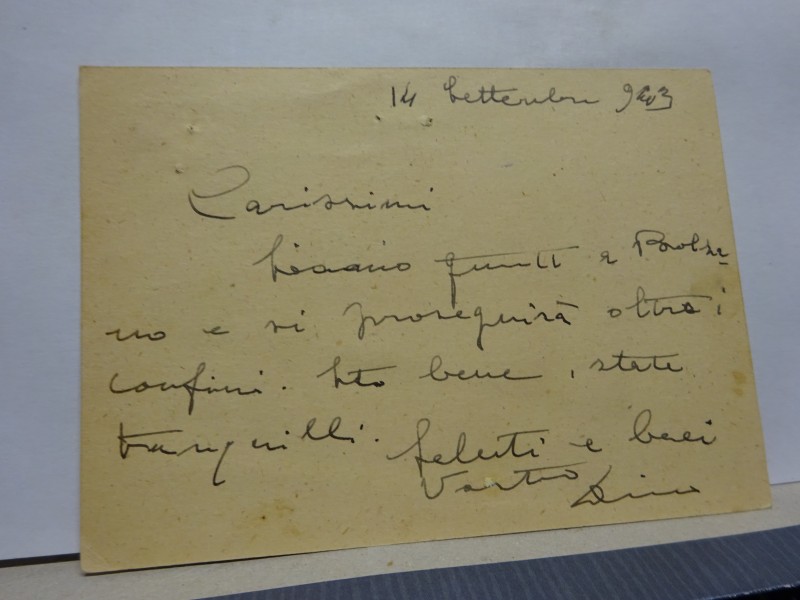 14 Settembre 943
Carissimi
Siamo giunti a Bolza-
no e si proseguirà oltre i
confini. Sto bene, state
tranquilli. Saluti e baci
Vostro Dino